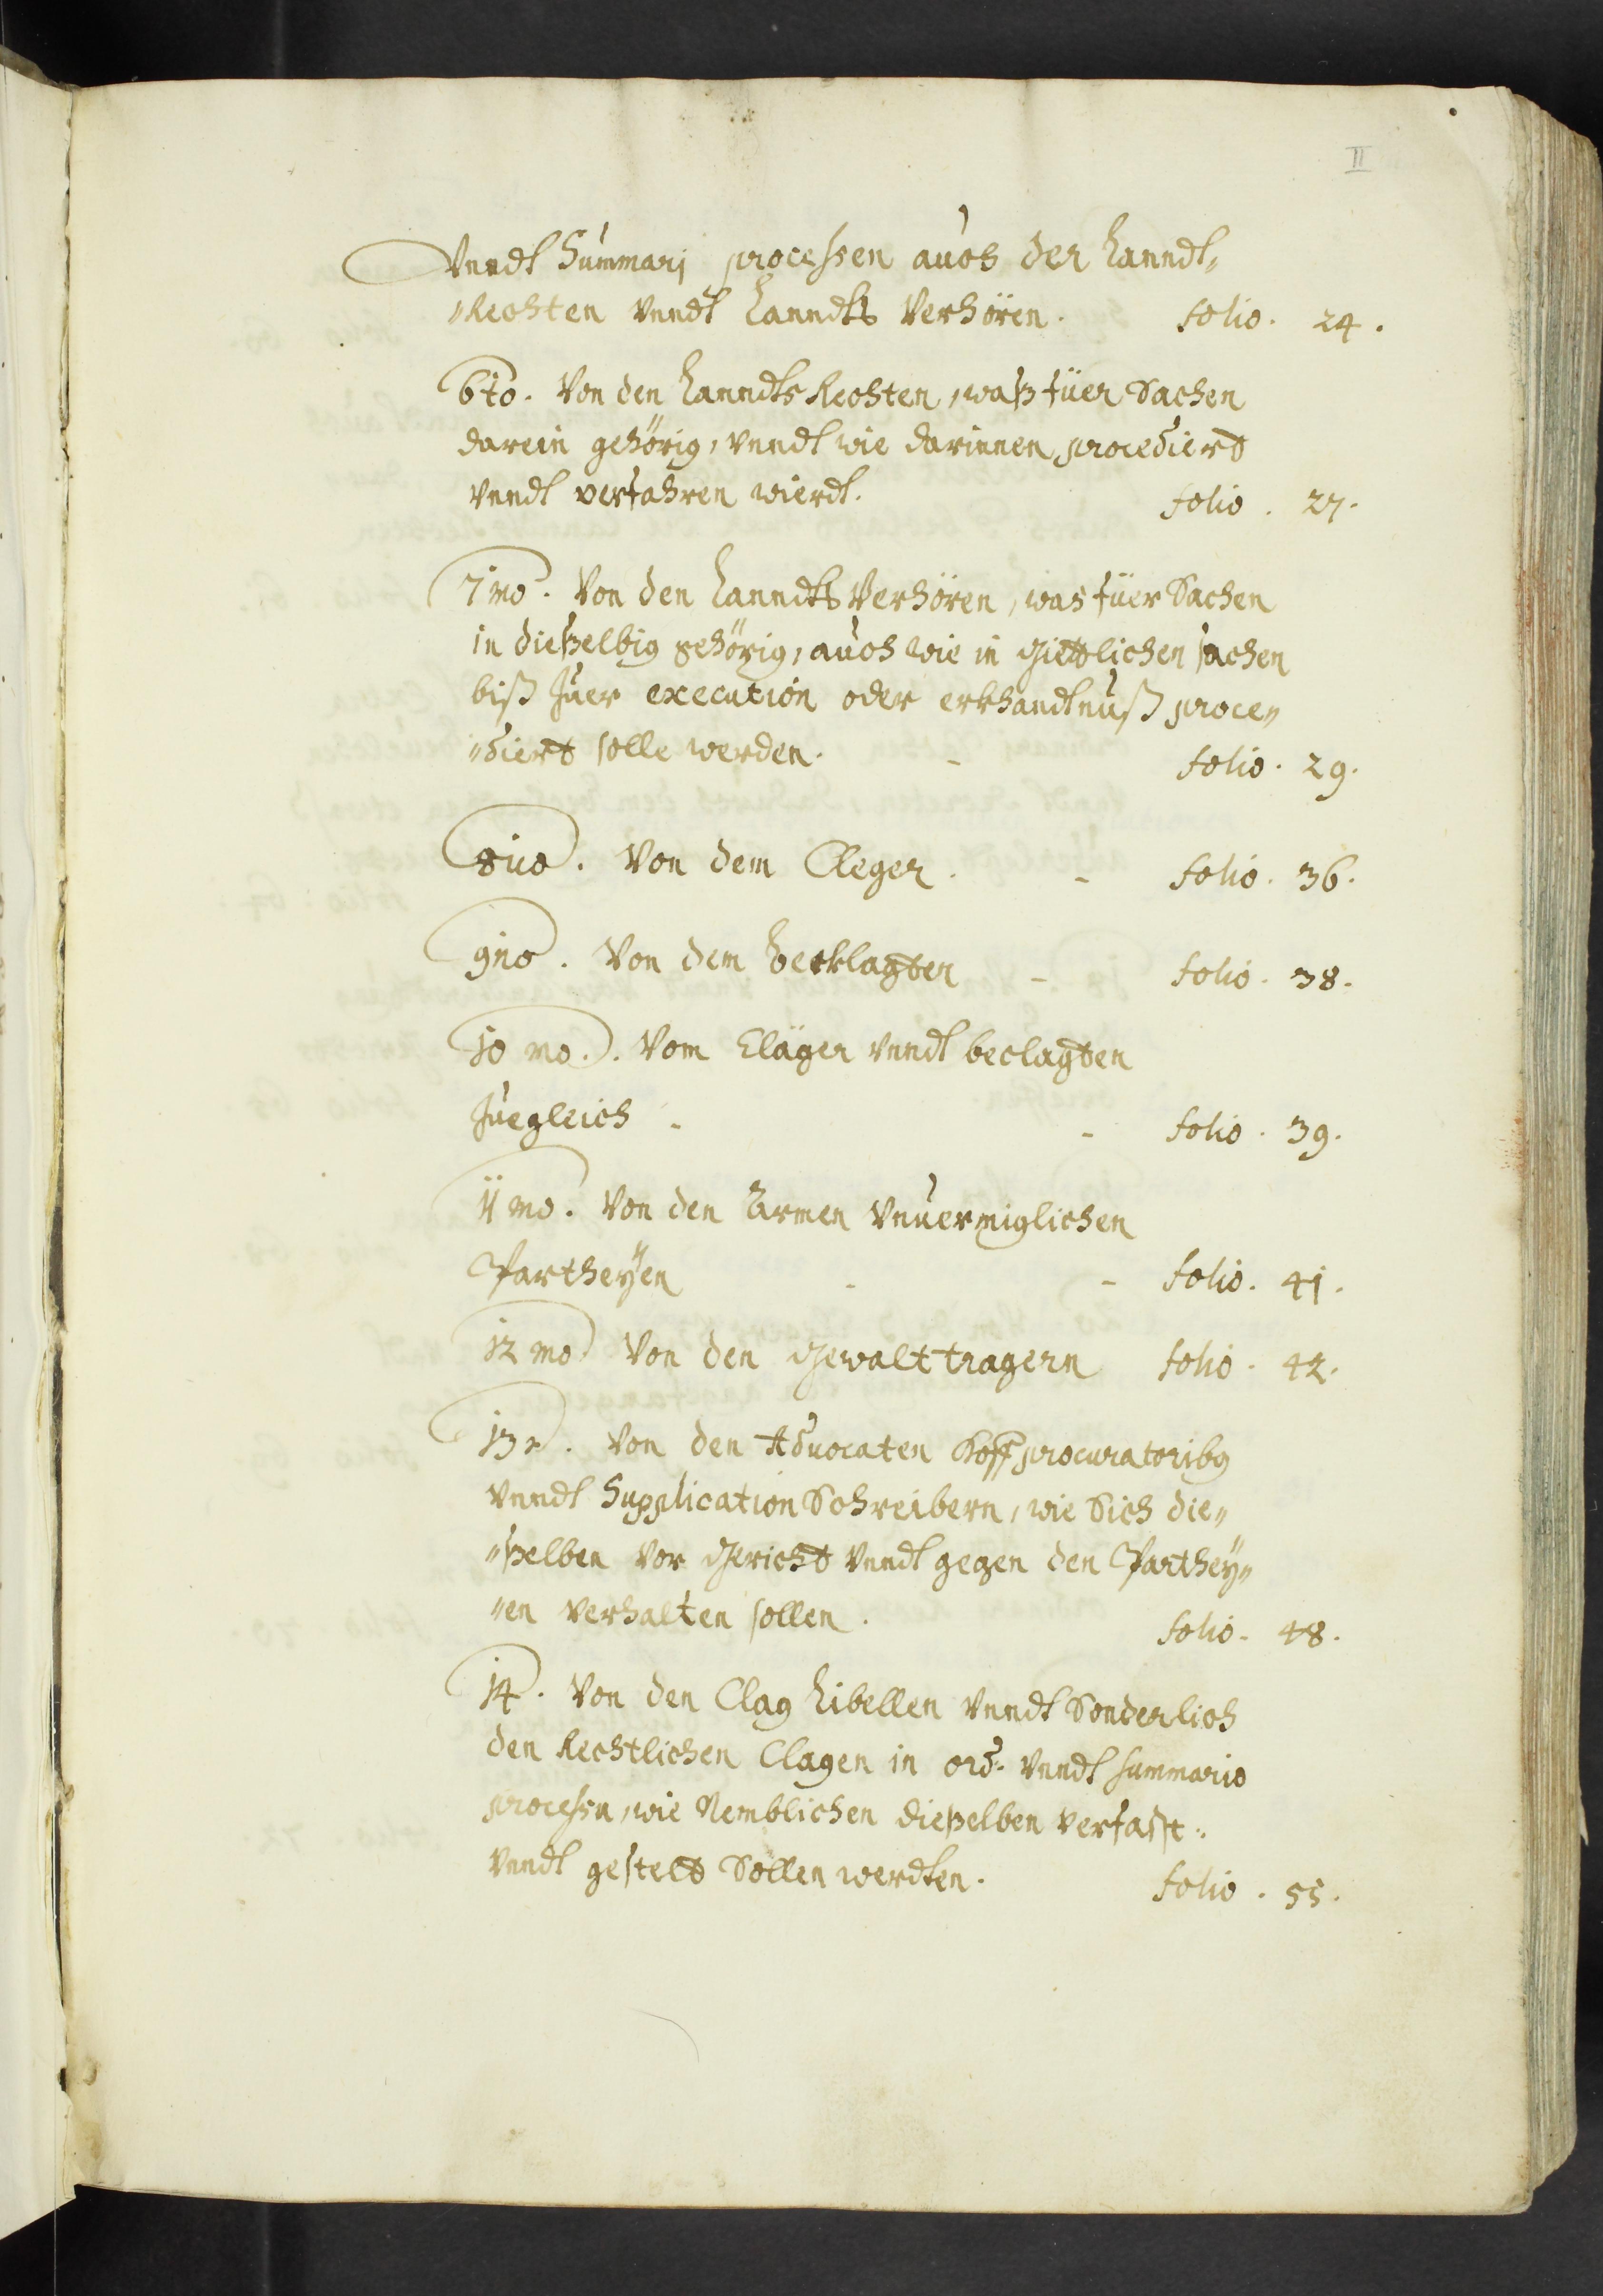 II
Vnndt Summarj processen auch der Lanndt„
„Rechten vnndt Lanndts Verhören. folio. 24.
6to. Von den Lanndts Rechten, waß füer Sachen
darein gehörig, vnndt wie darinnen procediert
vnndt verfahren wierdt. folio. 27.
7mo. Von den Lanndts Verhören, was füer Sachen
in dießelbig gehörig, auch wie in giettlichen sachen
biß Zuer execution oder erkhandtnuß proce„
„diert solle werden. - folio. 29.
8uo. Von dem Cleger. - folio. 36.
9no. Von dem beeklagten - folio. 38.
10mo. Vom Cläger vnndt beclagten
Zuegleich - - folio. 39.
11mo. Von den Armen Vnuermiglichen
Partheÿen - - folio. 41.
12mo. Von den Gewalttragern folio. 42.
13. Von den Advocaten Hoffprocuratoribg
vnndt Supplication Schreibern, wie Sich die„
„ßelben vor Gericht vnndt gegen den Parthey„
„en verhalten sollen. folio. 48.
14. Von den Clag Libellen vnndt Sonderlich
den Rechtlichen Clagen in ord. vnndt summario
processu, wie Nemblichen dießelben verfasst.
vnndt gestelt Sollen werdten. folio. 55.